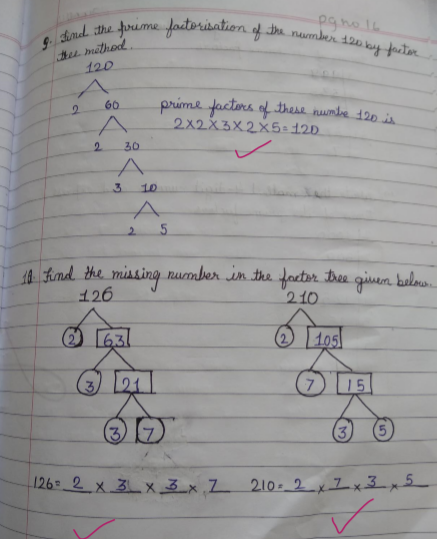 pg no. 16
9. Find the prime factorisation of the number 120 by factor
tree method.
120
2 60
prime factors of these numbe 120 is
2×2×3×2×5=120
2 30
3 10
2 5
10. Find the missing number in the factor tree given below.
126 210
2 63 2 105
3 21 7 15
3 7 3 5
126= 2 × 3 × 3 × 7 210= 2 × 7 × 3 × 5